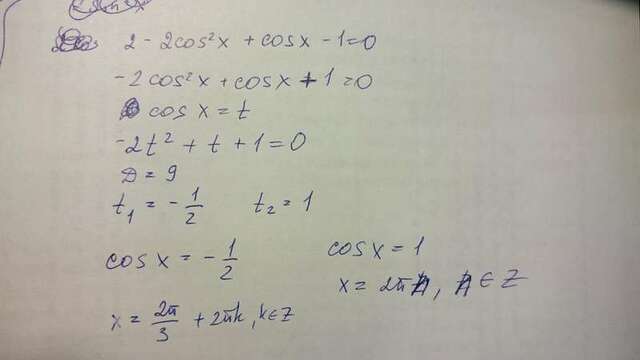 2 - 2cos²x + cosx - 1 = 0
-2cos²x + cosx + 1 = 0
cos x = t
-2t² + t + 1 = 0
D = 9
t₁ = -1/2 t₂ = 1
cos x = -1/2 cosx = 1
x = 2π/3 + 2πk, k∈Z x = 2πn, n∈Z